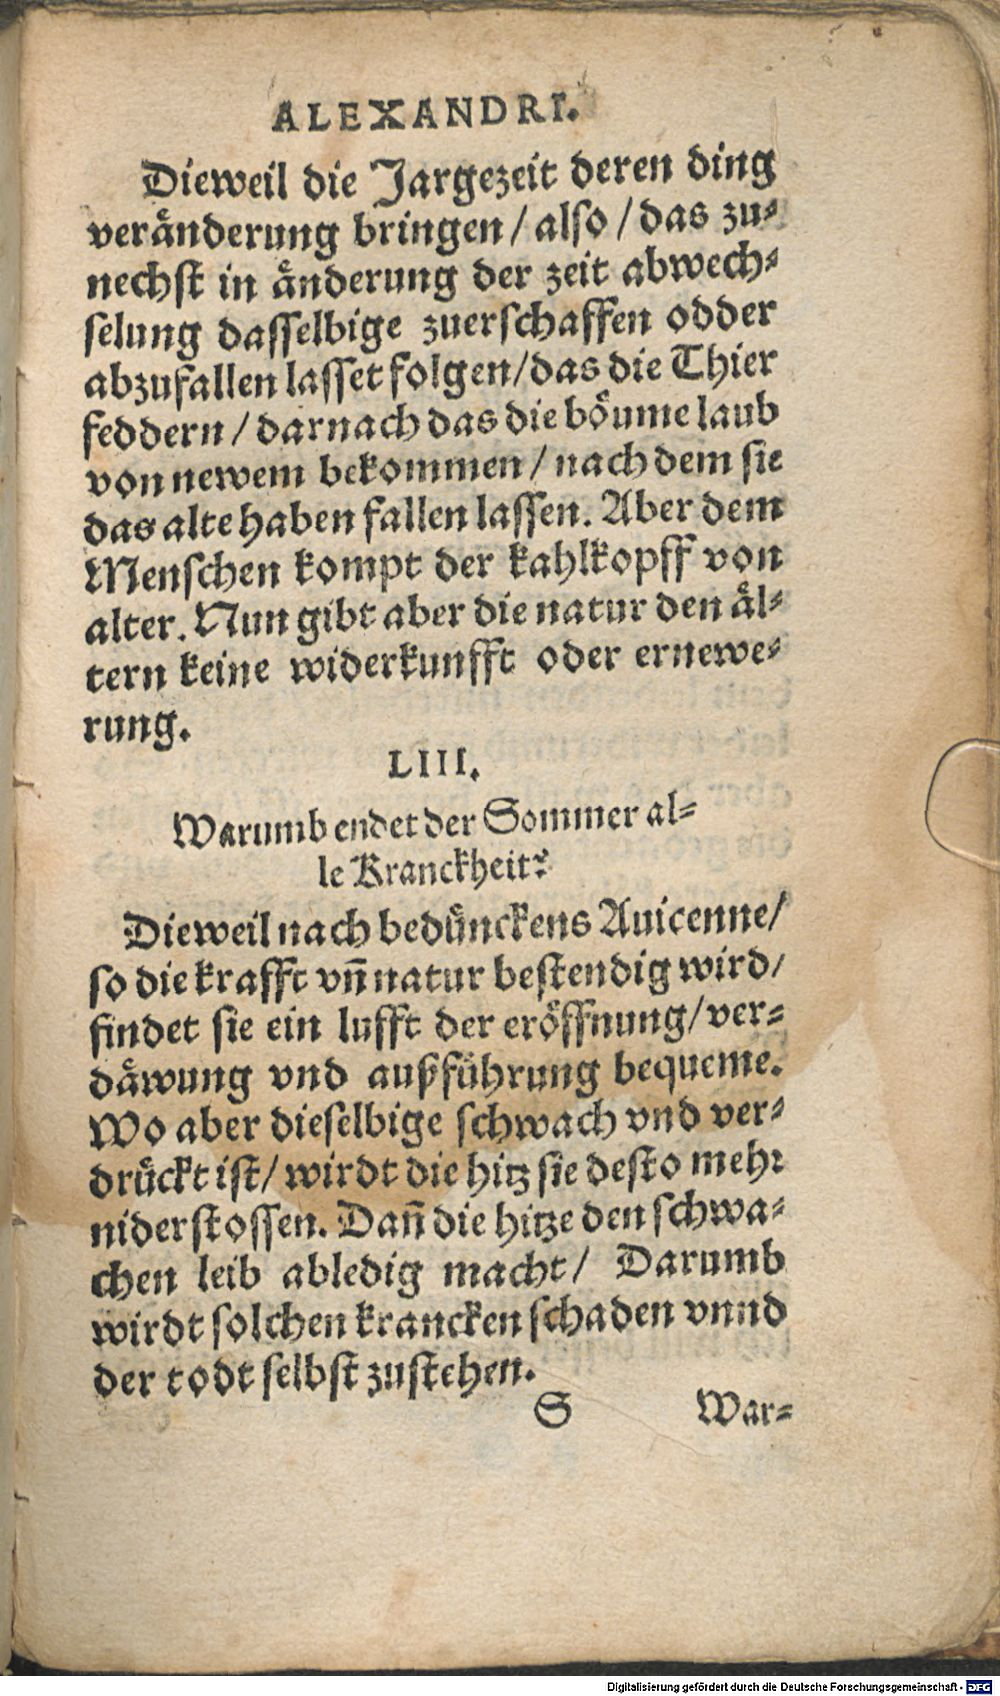 ALEXANDRI.
Dieweil die Jargezeit deren ding
veraͤnderung bringen / also / das zu-
nechst in aͤnderung der zeit abwech-
selung dasselbige zuerschaffen odder
abzufallen lasset folgen/das die Thier
feddern / darnach das die boͤume laub
von newem bekommen / nach dem sie
das alte haben fallen lassen. Aber dem
Menschen kompt der kahlkopff von
alter. Nun gibt aber die natur den aͤl-
tern keine widerkunfft oder ernewe-
rung.
LIII.
Warumb endet der Sommer al-
le Kranckheit?
Dieweil nach beduͤnckens Auicenne/
so die krafft vn̄ natur bestendig wird/
findet sie ein lufft der eroͤffnung/ver-
daͤwung vnd außfuͤhrung bequeme.
Wo aber dieselbige schwach vnd ver-
druͤckt ist/ wirdt die hitz sie desto mehr
niderstossen. Dan̄ die hitze den schwa-
chen leib abledig macht/ Darumb
wirdt solchen krancken schaden vnnd
der todt selbst zustehen.
S War-
Digitalisierung gefördert durch die Deutsche Forschungsgemeinschaft - DFG